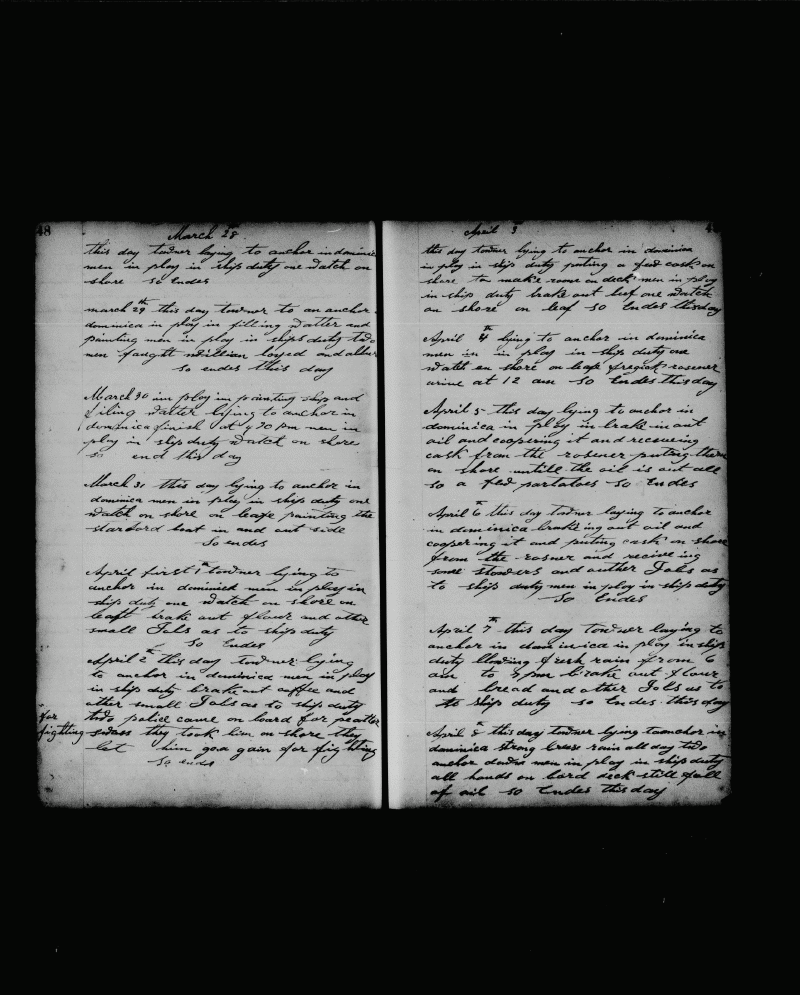 48
March 28
this day towner laying to anchor in dominica
men in ploy in ship duty one watch on
shore so Endes
march 29th this day towner to an anchor
dominica in ploy in filling watter and
painting men in ploy in ships duty two
men faught William loyed and
So endes this day
March 30 im ploy im painting ship and
filing watter lying to anchor in
dominica finish at 4 30 pm men in
ploy in ship duty watch on shore
so end this day
March 31 this day lying to anchor in
dominica men in ploy in ship duty one
watch on shore on leafe painting the
starbord boat in and out side
So endes
April first 1th towner lying to
anchor in dominica men in ploy in
ship duty one watch on shore on
leaft brake out flouer and other
small Jobs as to ship duty
So Endes
April 2th this day towner lying
to anchor in dominica men in ploy
in ship duty brake out coffee and
other small Jobs as to ship duty
two police came on board for peater
for fighting
swess they took him on shore they
let him goa gain for fighting
So ends
April 3
4
this day towner lying to anchor in dominica
in ploy in ship duty puting a few cask on
shore to make room on deck men in ploy
in ship duty brake out beef one watch
on shore on leaf so Endes this day
April 4th lying to anchor in dominica
men in in ploy in ship duty one
watch on shore on leafe rosener
arive at 12 am So Endes this day
April 5- this day lying to anchor in
dominica in ploy in brake in out
oil and coopering it and receveing
cask from the rosener puting them
on shore untill the oil is out all
so a few partatoes so Endes
April 6th this day towner laying to anchor
in dominica brake ing out oil and
coopering it and puting cask on shore
from the rosner and recive ing
some stowers and outher Jobs as
to ship duty men in ploy in ship duty
So Endes
April 7th this day towner laying to
anchor in dominica in ploy in ship
duty blowing fresh rain from 6
am to 5 pm brake out flour
and bread and other Jobs as to
to ship duty so Endes this day
April 8th this day towner lying to anchor in
dominica strong brese rain all day two
anchor down men in ploy in ship duty
all hands on bord deck still full
of oil so Endes this day